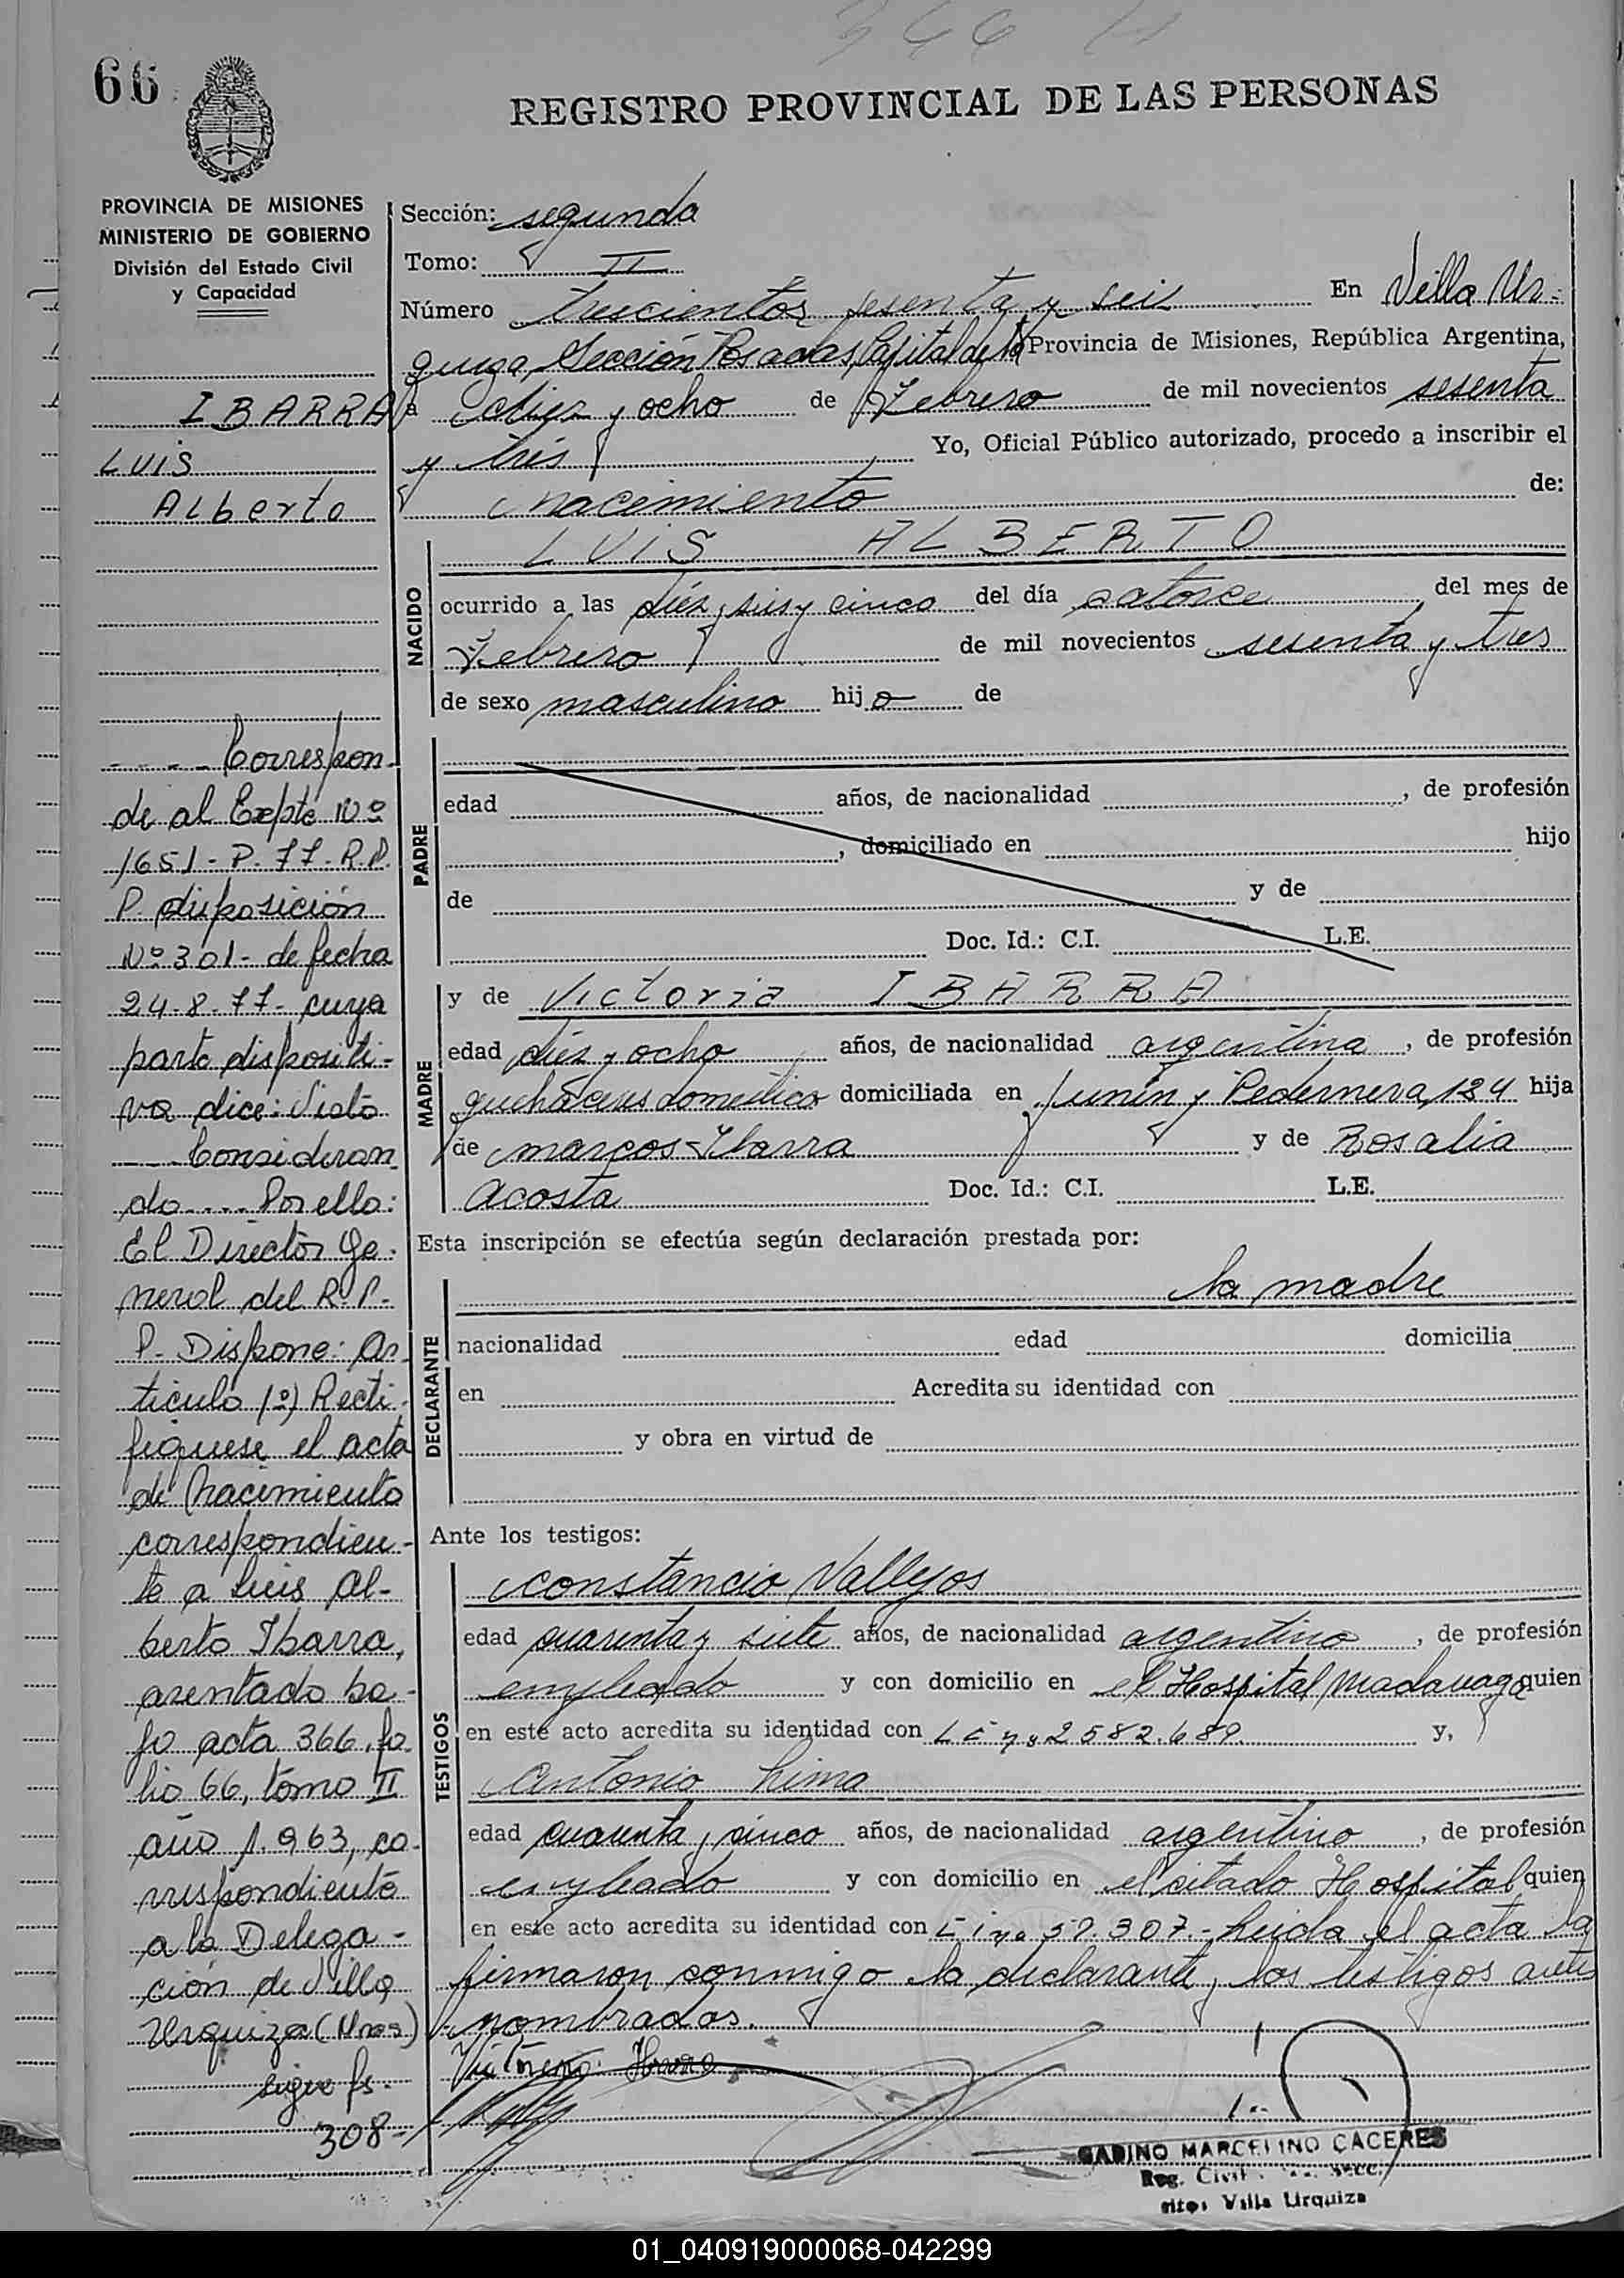 366
66
REGISTRO PROVINCIAL DE LAS PERSONAS
PROVINCIA DE MISIONES
MINISTERIO DE GOBIERNO
División del Estado Civil
y Capacidad
IBARRA
LUIS
ALberto
- - - - Correspon-
de al Expte Nº
1651-P-77-R.P.
P. disposición
Nº 301- de fecha
24-8-77- cuya
parte dispositi-
va dice: Visto
---- Consideran
do.... Por ello:
El Director Ge-
neral del R.P.
P. Dispone: Ar
ticulo 1º) Recti-
fiquese el acta
de Nacimiento
correspondien-
te a Luis Al-
berto Ibarra,
asentado ba-
jo acta 366, fo
lio 66, tomo II
año 1.963, co-
rrespondiente
a la Delega-
ción de Villa
Urquiza (Mnes)
sigue fs.
308-
Sección: segunda
Tomo: II
Número trescientos sesenta y seis En Villa Ur-
quiza, Sección Posadas, Capital de la Provincia de Misiones, República Argentina,
a diez y ocho de Febrero de mil novecientos sesenta
y tres Yo, Oficial Público autorizado, procedo a inscribir el
nacimiento de:
NACIDO
LUIS ALBERTO
ocurrido a las diez, seis y cinco del día catorce del mes de
Febrero de mil novecientos sesenta y tres
de sexo masculino hijo de
PADRE
edad años, de nacionalidad , de profesión
, domiciliado en hijo
de y de
Doc. Id.: C.I. L.E.
MADRE
y de Victoria IBARRA
edad diez y ocho años, de nacionalidad argentina, de profesión
quehaceres domésticos domiciliada en Junín y Pedernera, 184 hija
de Marcos Ibarra y de Rosalia
Acosta Doc. Id.: C.I. L.E.
Esta inscripción se efectúa según declaración prestada por:
DECLARANTE
la madre
nacionalidad edad domicilia
en Acredita su identidad con
y obra en virtud de
Ante los testigos:
TESTIGOS
Constancio Vallejos
edad cuarenta y siete años, de nacionalidad argentino, de profesión
empleado y con domicilio en el Hospital Madariaga quien
en este acto acredita su identidad con L E nº 2582.689. y,
Antonio Lima
edad cuarenta y cinco años, de nacionalidad argentino, de profesión
empleado y con domicilio en el citado Hospital quien
en este acto acredita su identidad con 307.- Leida el acta la
firmaron conmigo la declarante, los testigos ante
nombrados.
Ibarra
GABINO MARCELINO CACERES
Reg. Civil Secc.
Villa Urquiza
01_040919000068-042299